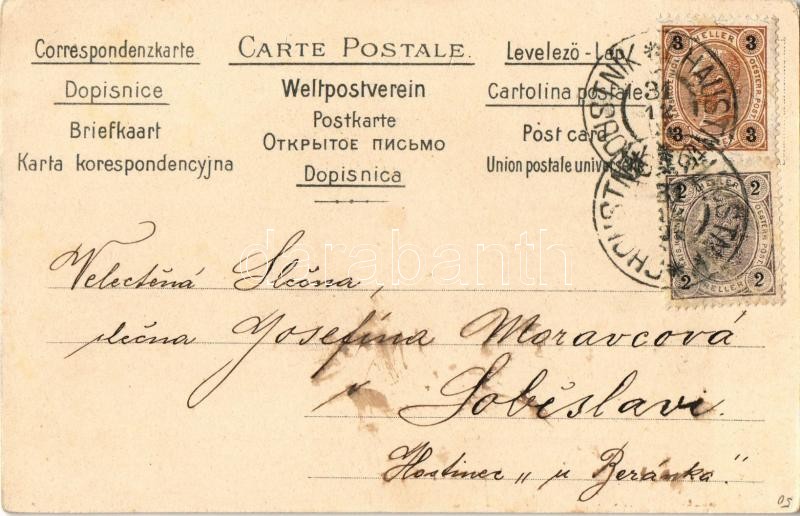 Correspondenzkarte
Dopisnice
Briefkaart
Karta korespondencyjna
CARTE POSTALE.
Weltpostverein
Postkarte
ОТКРЫТОЕ ПИСЬМО
Dopisnica
Levelező - Lap
Cartolina postale
Post card
Union postale universelle
3 HELLER 3
3 3
2 HELLER 2
2 HELLER 2
CHOUSTNÍK
darabanth
Velectěná Slečna,
slečna Josefína Moravcová
v Soběslavi.
Hostinec „u Beránka."
50